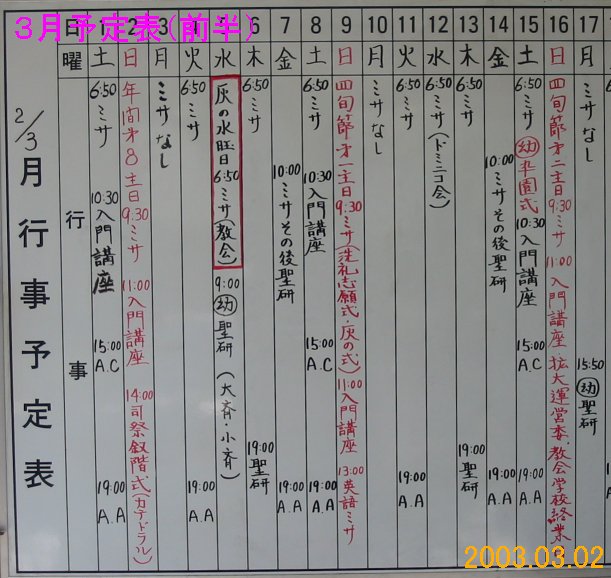 3月予定表(前半)
2/3月行事予定表
日
曜
行事
土
6:50ミサ
10:30入門講座
15:00 A.C
19:00 A.A
2
日
年間第8主日 9:30ミサ
11:00入門講座
14:00司祭叙階式(カテドラル)
3
月
ミサなし
火
6:50ミサ
19:00 A.A
水
灰の水曜日 6:50ミサ(教会)
9:00幼聖研
(大斉・小斉)
6
木
6:50ミサ
19:00聖研
7
金
10:00ミサその後聖研
19:00 A.A
8
土
6:50ミサ
10:30入門講座
15:00 A.C
19:00 A.A
9
日
四旬節第一主日 9:30ミサ(洗礼志願式・灰の式)
11:00入門講座
13:00英語ミサ
10
月
ミサなし
11
火
6:50ミサ
19:00 A.A
12
水
6:50ミサ(ドミニコ会)
13
木
6:50ミサ
19:00聖研
14
金
10:00ミサその後聖研
19:00 A.A
15
土
6:50ミサ
幼卒園式
10:30入門講座
15:00 A.C
19:00 A.A
16
日
四旬節第二主日 9:30ミサ
11:00入門講座
拡大運営委・教会学校終業
17
月
ミサなし
15:50幼聖研
2003.03.02